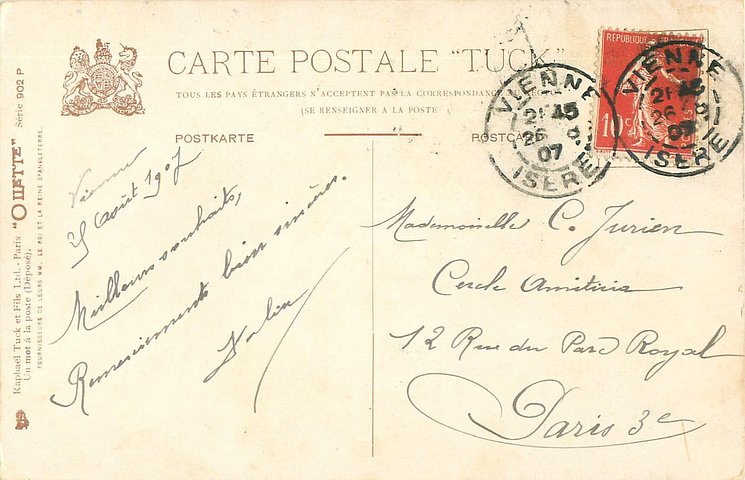 CARTE POSTALE "TUCK"
TOUS LES PAYS ÉTRANGERS N'ACCEPTENT PAS LA CORRESPONDANCE
(SE RENSEIGNER A LA POSTE
POSTKARTE
POSTCA
Raphael Tuck et Fils Ltd. - Paris "OILETTE" Série 902 P
Un mot à la poste (Déposé).
FOURNISSEURS DE LEURS MM. LE ROI ET LA REINE D'ANGLETERRE.
REPUBLIQUE
10c
VIENNE
21 45
26 8
07
ISERE
VIENNE
21 45
26 8
ISERE
Vienne
25 Août 1907
Meilleurs souhaits,
Remerciements bien sincères.
Mademoiselle C. Jurien
Cercle Amicitia
12 Rue du Parc Royal
Paris 3e